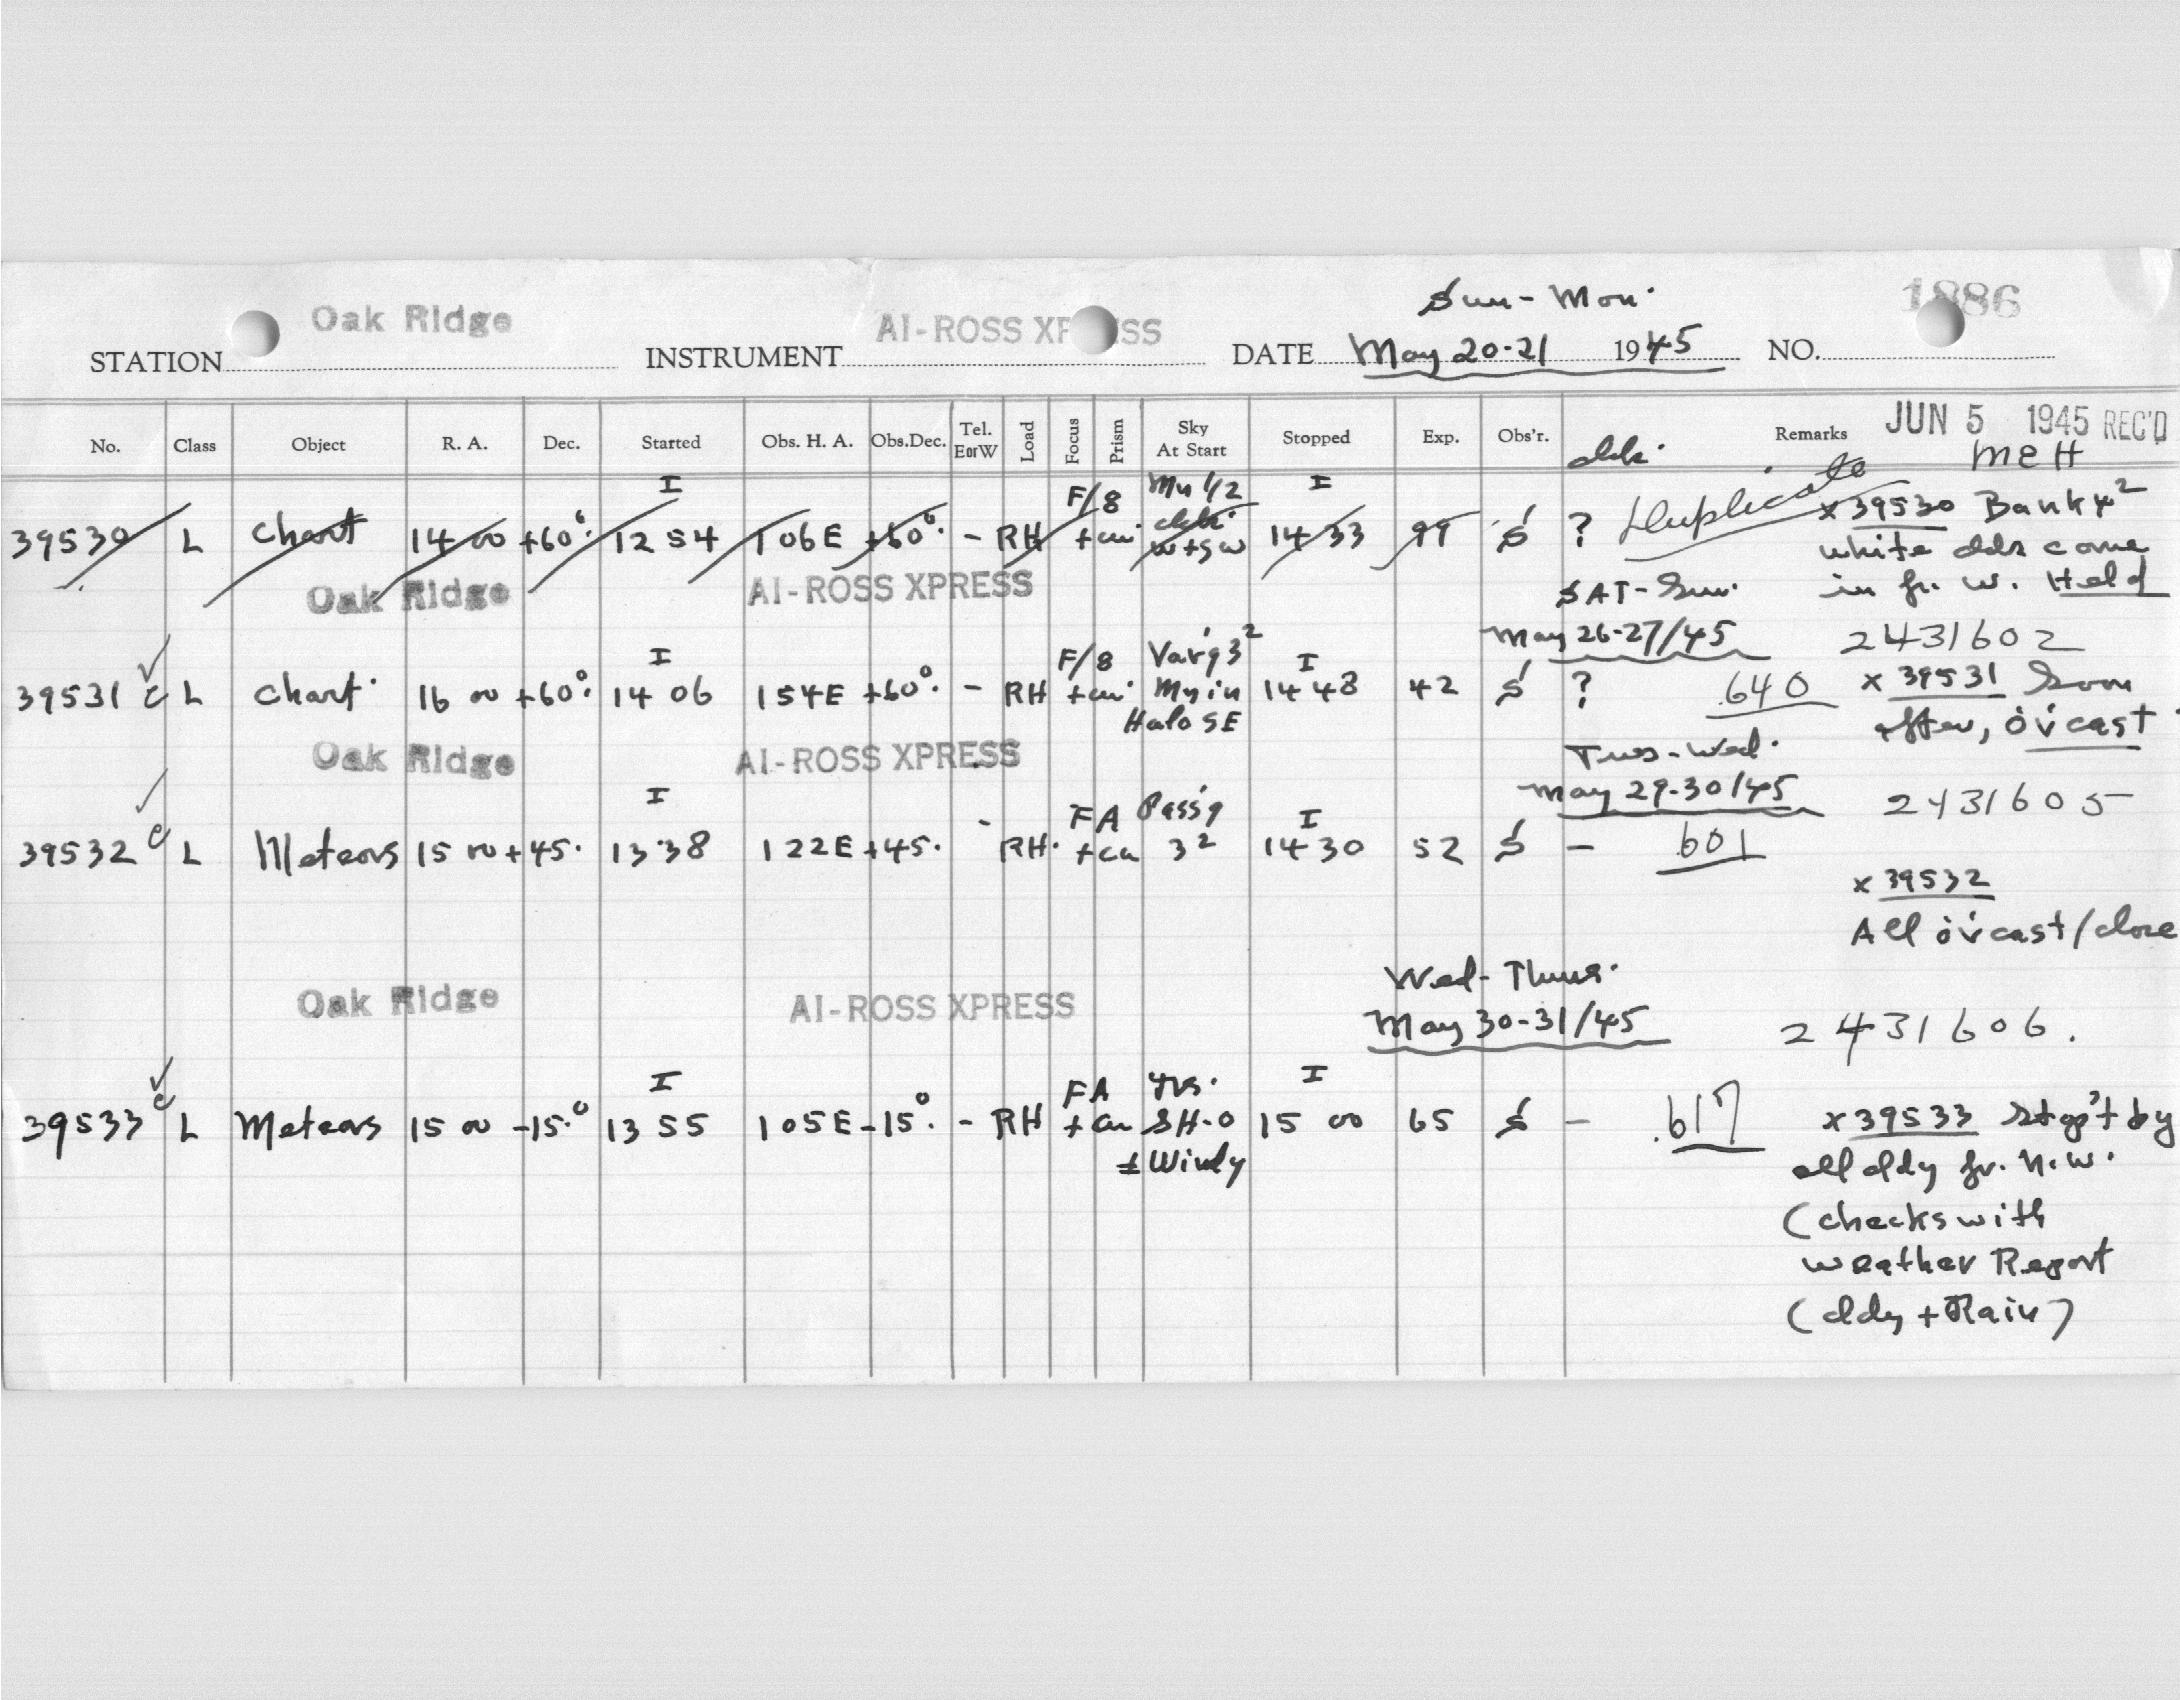 Sun - Mon.
1886
Oak Ridge AI-ROSS XPRESS
STATION INSTRUMENT DATE May 20-21 1945 NO.
JUN 5 1945 REC'D
No. Class Object R. A. Dec. Started Obs. H. A. Obs.Dec. Tel. EorW Load Focus Prism Sky At Start Stopped Exp. Obs'r. Remarks
MeH
I F/8 Mn 1/2 I Duplicate x 39530 Bank
39530 L Chart 14 00 +60°. 12 54 106E +60°. - RH W+SW 14 33 99 S ?
white clds come
Oak Ridge AI-ROSS XPRESS SAT-Sun. in fr. W. Held
May 26-27/45 2431602
I F/8 Var'g 3² I
39531 c L Chart. 16 00 +60°. 14 06 154E +60°. - RH Mn in 14 48 42 S ? .640 x 39531 Soon
Halo SE after, ov'cast.
Oak Ridge AI-ROSS XPRESS Tues-Wed.
May 29-30/45 2431605
I FA Pass'g I
39532 c L Meteors 15 00 +45. 13 38 122E +45. - RH. 3² 14 30 52 S - .601
x 39532
All ov'cast/close
Wed-Thurs.
Oak Ridge AI-ROSS XPRESS May 30-31/45 2431606.
I FA I
39533 c L Meteors 15 00 -15.° 13 55 105E -15°. - RH SH-0 15 00 65 S - .617 x 39533 stop't by
± Windy all cldy fr. N.W.
(checks with
weather Report
(cldy + Rain)